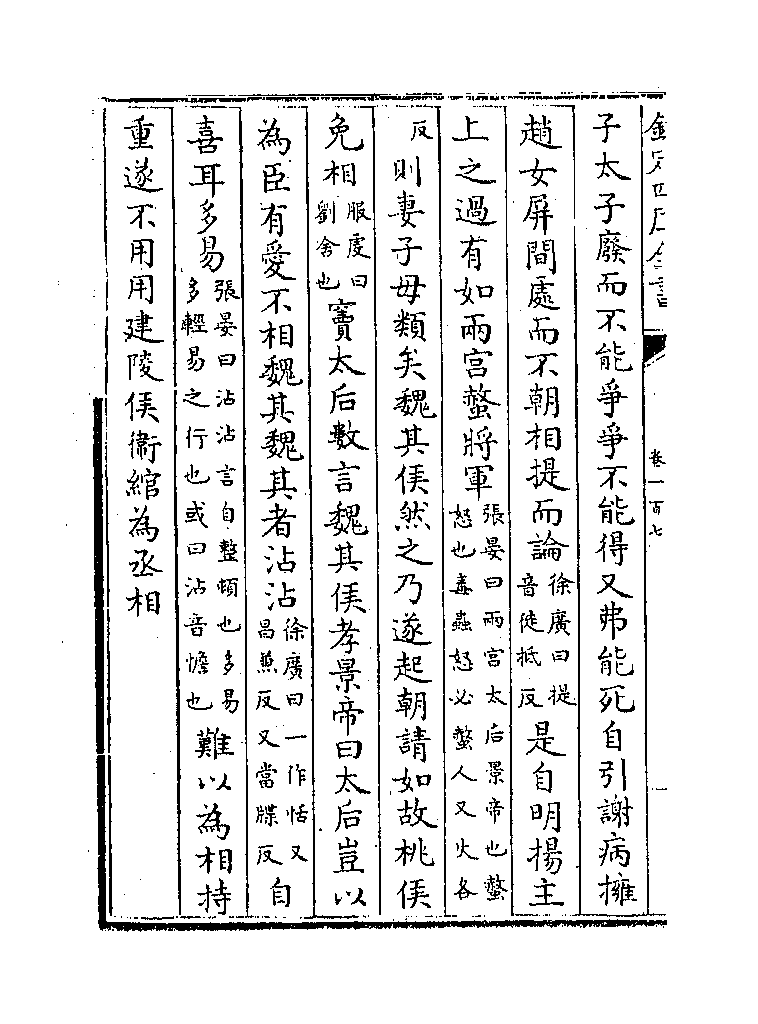 欽定四庫全書
卷一百七
子太子廢而不能爭爭不能得又弗能死自引謝病擁
趙女屏間處而不朝相提而論徐廣曰提音徒抵反是自明揚主
上之過有如兩宫螫將軍張晏曰兩宫太后景帝也螫怒也毒蟲怒必螫人又火各
反則妻子毋類矣魏其侯然之乃遂起朝請如故桃侯
免相服䖍曰劉舍也竇太后數言魏其侯孝景帝曰太后豈以
為臣有愛不相魏其魏其者沾沾徐廣曰一作怗又昌兼反又當牒反自
喜耳多易張晏曰沾沾言自整頓也多易多輕易之行也或曰沾音憺也難以為相持
重遂不用用建陵侯衛綰為丞相